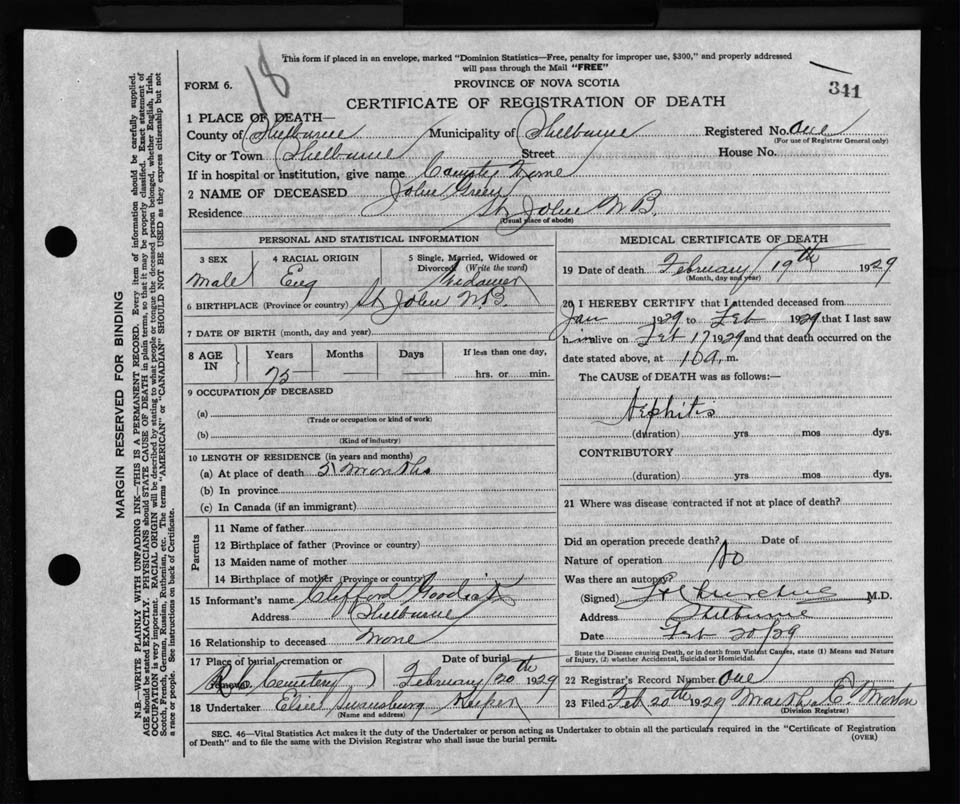 This form if placed in an envelope, marked "Dominion Statistics—Free, penalty for improper use, $300," and properly addressed
will pass through the Mail "FREE"
18
FORM 6.
PROVINCE OF NOVA SCOTIA
341
CERTIFICATE OF REGISTRATION OF DEATH
1 PLACE OF DEATH—
County of Shelburne Municipality of Shelburne Registered No. One
(For use of Registrar General only)
City or Town Shelburne Street House No.
If in hospital or institution, give name County Home
2 NAME OF DECEASED John Green
Residence St John N B.
(Usual place of abode)
PERSONAL AND STATISTICAL INFORMATION
3 SEX 4 RACIAL ORIGIN 5 Single, Married, Widowed or
Divorced (Write the word)
Male Eng Widower
6 BIRTHPLACE (Province or country) St John N.B.
7 DATE OF BIRTH (month, day and year)
8 AGE IN Years Months Days If less than one day,
75 — — hrs. or min.
9 OCCUPATION OF DECEASED
(a)
(Trade or occupation or kind of work)
(b)
(Kind of industry)
10 LENGTH OF RESIDENCE (in years and months)
(a) At place of death Months
(b) In province
(c) In Canada (if an immigrant)
Parents
11 Name of father
12 Birthplace of father (Province or country)
13 Maiden name of mother
14 Birthplace of mother (Province or country)
15 Informant's name Clifford
Address Shelburne
16 Relationship to deceased None
17 Place of burial, cremation or Date of burial
Cemetery February 20th 1929
18 Undertaker Elsie Swansburg Keeper
(Name and address)
MEDICAL CERTIFICATE OF DEATH
19 Date of death February 19th 1929
(Month, day and year)
20 I HEREBY CERTIFY that I attended deceased from
Jan 1929 to Feb 1929 that I last saw
him alive on Feb 17 1929 and that death occurred on
date stated above, at 10 a. m.
The CAUSE of DEATH was as follows:—
Nephitis
(duration) yrs mos dys.
CONTRIBUTORY
(duration) yrs mos dys.
21 Where was disease contracted if not at place of death?
Did an operation precede death? Date of
Nature of operation No
Was there an autopsy
(Signed) M.D.
Address Shelburne
Date Feb 20/29
State the Disease causing Death, or in death from Violent Causes, state (1) Means and Nature
of Injury, (2) whether Accidental, Suicidal or Homicidal.
22 Registrar's Record Number One
23 Filed Feb 20th 1929 Martha C. Morton
(Division Registrar)
SEC. 46—Vital Statistics Act makes it the duty of the Undertaker or person acting as Undertaker to obtain all the particulars required in the "Certificate of Registration
of Death" and to file the same with the Division Registrar who shall issue the burial permit.
(OVER)
MARGIN RESERVED FOR BINDING
N.B.—WRITE PLAINLY WITH UNFADING INK—THIS IS A PERMANENT RECORD. Every item of information should be carefully supplied.
AGE should be stated EXACTLY. PHYSICIANS should STATE CAUSE OF DEATH in plain terms, so that it may be properly classified. Exact statement of
OCCUPATION is very important. RACIAL ORIGIN will be described by stating to what people or tongue the deceased person belonged, whether English, Irish,
Scotch, French, German, Russian, Ruthenian, etc. The terms "AMERICAN" or "CANADIAN" SHOULD NOT BE USED as they express citizenship but not
a race or people. See instructions on back of Certificate.